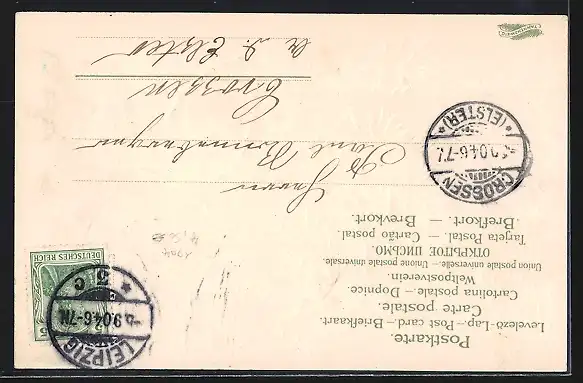 Postkarte.
Levelező-Lap – Post card. – Briefkaart.
Carte postale.
Cartolina postale – Dopnice.
Weltpostverein.
Union postale universelle. – Unione postale universale.
ОТКРЫТОЕ ПИСЬМО.
Tarjeta Postal. – Cartão postal.
Brefkort. – Brevkort.
LEIPZIG
5.9.04.6-7N.
* 5 c
DEUTSCHES REICH
5
CROSSEN
9.04.6-7
*(ELSTER)*
Herrn
Paul
Crossen
a. d. Elster